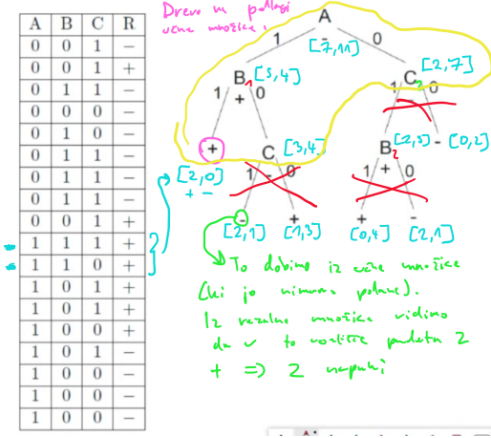 A B C R
0 0 1 −
0 0 1 +
0 1 1 −
0 0 0 −
0 1 0 −
0 1 1 −
0 1 1 −
0 1 1 −
0 0 1 +
1 1 1 +
1 1 0 +
1 0 1 +
1 0 1 +
1 0 0 +
1 0 1 −
1 0 0 −
1 0 0 −
1 0 0 −
Drevo na podlagi
učne množice.
A
1 - 0
[7,11]
B1 [5,4] C2 [2,7]
1 + 0 1 0
+ C [3,4] B2 [2,5] - [0,2]
[2,0] 1 - 0 1 + 0
+ -
- + + -
[2,1] [1,3] [0,4] [2,1]
To dobimo iz učne množice
(ki jo nimamo podane).
Iz rezalne množice vidimo
da v to vozlišče padeta 2
+ => 2 napaki